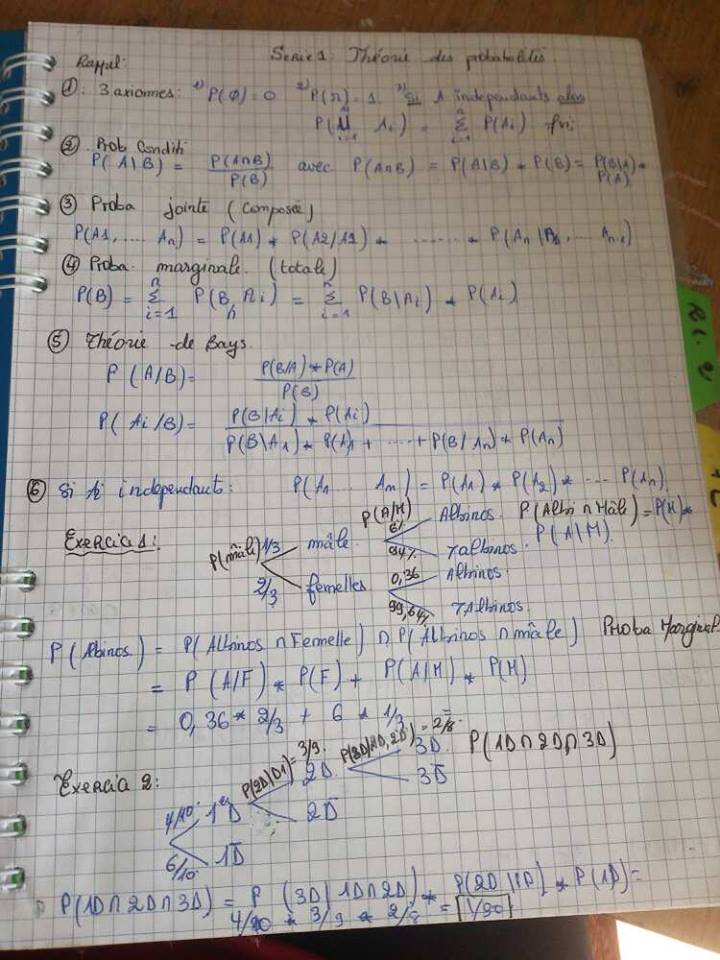 Serie 1: Théorie des probabilités.
Rappel:
①: 3 axiomes: 1) P(Ø)=0 2) P(Ω)=1 3) Si 1 independants alors
P(⋃ i=1 n Ai) = Σ i=1 n P(Ai)
② Prob Conditi
P(A|B) = P(A∩B) / P(B) avec P(A∩B) = P(A|B) * P(B) = P(B|A) * P(A)
③ Proba jointe (composée)
P(A1, .... An) = P(A1) * P(A2/A1) * ........ * P(An|A1, ... An-1)
④ Proba marginale. (totale)
P(B) = Σ i=1 n P(B ∩ Ai) = Σ i=1 n P(B|Ai) * P(Ai)
⑤ Théorie de Bays.
P(A/B) = P(B/A) * P(A) / P(B)
P(Ai/B) = P(B|Ai) * P(Ai) / P(B|A1) * P(A1) + ..... + P(B/An) * P(An)
⑥ Si Ai independants: P(A1 .... An) = P(A1) * P(A2) * ... P(An).
Exercice 1:
P(mâle) 1/3 mâle P(A/M) 6% Albinos. P(Albi ∩ Mâle) = P(M) * P(A|M).
94% 7albinos.
2/3 femelles 0,36 Albinos.
99,64% 7Albinos.
P(Albinos) = P(Albinos ∩ Femelle) ∩ P(Albinos ∩ mâle) Proba Marginal
= P(A/F) * P(F) + P(A/M) * P(M)
= 0,36 * 2/3 + 6 * 1/3
Exercice 2:
4/10 1er D P(2D|D1) = 3/9. 2D P(3D/1D,2D) = 2/8. 3D. P(1D∩2D∩3D)
3D̄
2D̄
6/10 1D̄
P(1D∩2D∩3D) = P(3D|1D∩2D) * P(2D|1D) * P(1D) =
4/10 * 3/9 * 2/8 = 1/30